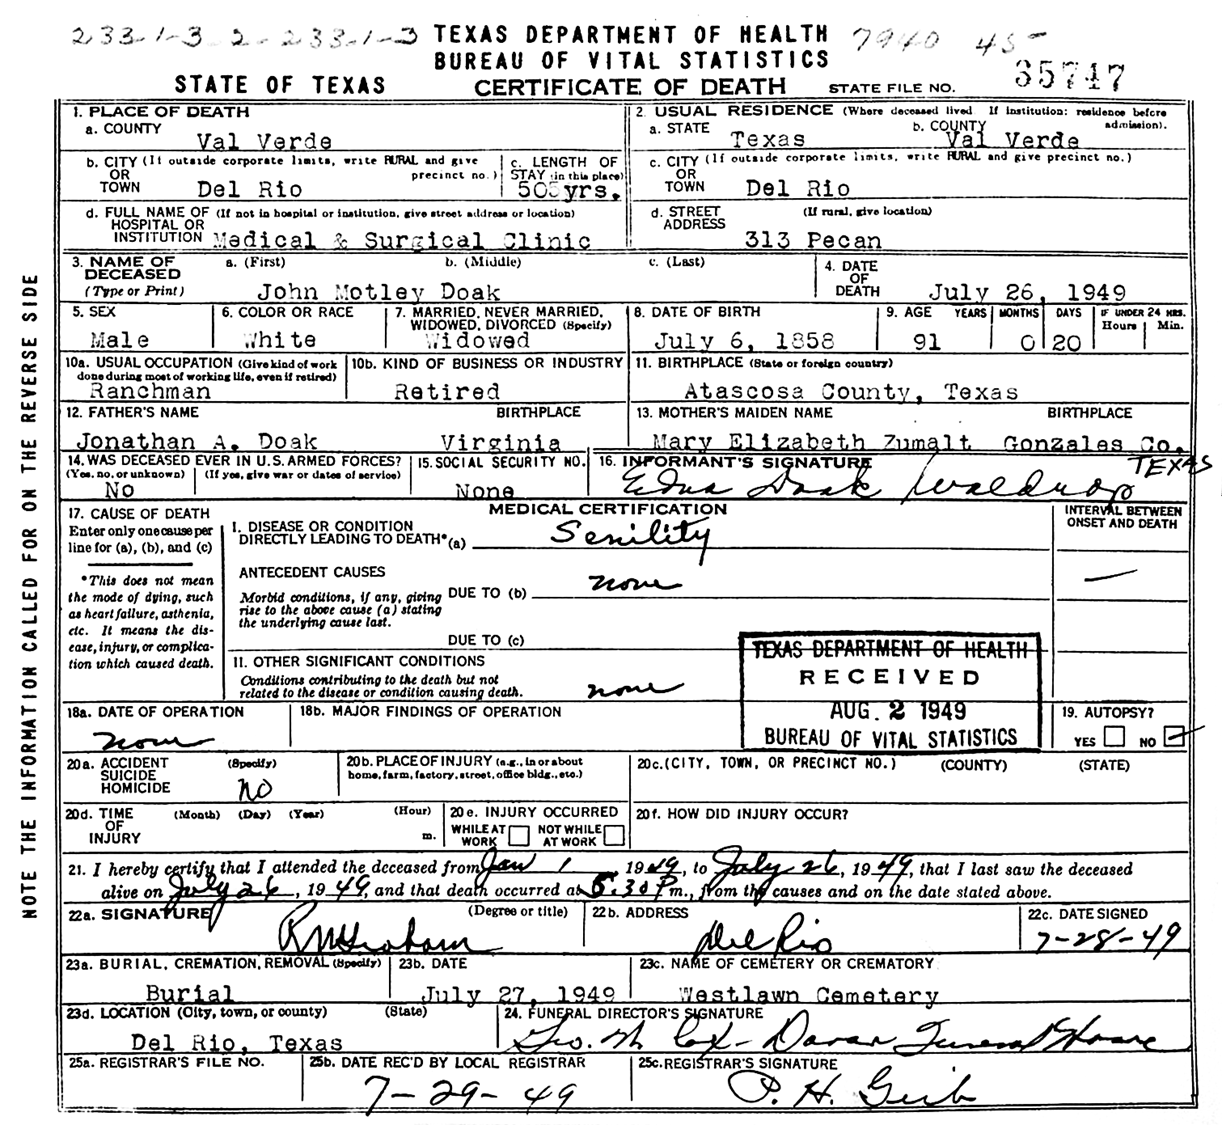 233-1-3 2-233-1-3 TEXAS DEPARTMENT OF HEALTH 7940 45-
BUREAU OF VITAL STATISTICS
STATE OF TEXAS CERTIFICATE OF DEATH STATE FILE NO. 35747
1. PLACE OF DEATH
a. COUNTY
Val Verde
2. USUAL RESIDENCE (Where deceased lived If institution: residence before admission).
a. STATE
Texas
b. COUNTY
Val Verde
b. CITY (If outside corporate limits, write RURAL and give precinct no.)
OR
TOWN Del Rio
c. LENGTH OF
STAY (in this place)
50 yrs.
c. CITY (If outside corporate limits, write RURAL and give precinct no.)
OR
TOWN Del Rio
d. FULL NAME OF (If not in hospital or institution, give street address or location)
HOSPITAL OR
INSTITUTION Medical & Surgical Clinic
d. STREET (If rural, give location)
ADDRESS
313 Pecan
3. NAME OF
DECEASED
(Type or Print)
a. (First) b. (Middle) c. (Last)
John Motley Doak
4. DATE
OF
DEATH July 26, 1949
5. SEX
Male
6. COLOR OR RACE
White
7. MARRIED, NEVER MARRIED,
WIDOWED, DIVORCED (Specify)
Widowed
8. DATE OF BIRTH
July 6, 1858
9. AGE YEARS MONTHS DAYS IF UNDER 24 HRS.
Hours Min.
91 0 20
10a. USUAL OCCUPATION (Give kind of work
done during most of working life, even if retired)
Ranchman
10b. KIND OF BUSINESS OR INDUSTRY
Retired
11. BIRTHPLACE (State or foreign country)
Atascosa County, Texas
12. FATHER'S NAME BIRTHPLACE
Jonathan A. Doak Virginia
13. MOTHER'S MAIDEN NAME BIRTHPLACE
Mary Elizabeth Zumalt Gonzales Co.
TEXAS
14. WAS DECEASED EVER IN U.S. ARMED FORCES?
(Yes, no, or unknown) (If yes, give war or dates of service)
No
15. SOCIAL SECURITY NO.
None
16. INFORMANT'S SIGNATURE
Edna Doak Waldrop
MEDICAL CERTIFICATION
17. CAUSE OF DEATH
Enter only one cause per
line for (a), (b), and (c)
*This does not mean
the mode of dying, such
as heart failure, asthenia,
etc. It means the dis-
ease, injury, or complica-
tion which caused death.
I. DISEASE OR CONDITION
DIRECTLY LEADING TO DEATH* (a) Senility
ANTECEDENT CAUSES
Morbid conditions, if any, giving
rise to the above cause (a) stating
the underlying cause last.
DUE TO (b) none
DUE TO (c)
11. OTHER SIGNIFICANT CONDITIONS
Conditions contributing to the death but not
related to the disease or condition causing death.
none
INTERVAL BETWEEN
ONSET AND DEATH
—
TEXAS DEPARTMENT OF HEALTH
RECEIVED
AUG. 2 1949
BUREAU OF VITAL STATISTICS
18a. DATE OF OPERATION
none
18b. MAJOR FINDINGS OF OPERATION
19. AUTOPSY?
YES NO
20a. ACCIDENT (Specify)
SUICIDE
HOMICIDE
NO
20b. PLACE OF INJURY (e.g., in or about
home, farm, factory, street, office bldg., etc.)
20c. (CITY, TOWN, OR PRECINCT NO.) (COUNTY) (STATE)
20d. TIME (Month) (Day) (Year) (Hour)
OF
INJURY m.
20e. INJURY OCCURRED
WHILE AT
WORK
NOT WHILE
AT WORK
20f. HOW DID INJURY OCCUR?
21. I hereby certify that I attended the deceased from Jan 1, 1949, to July 26, 1949, that I last saw the deceased
alive on July 26, 1949, and that death occurred at 5:30 P m., from the causes and on the date stated above.
22a. SIGNATURE (Degree or title)
R M Graham
22b. ADDRESS
Del Rio
22c. DATE SIGNED
7-28-49
23a. BURIAL, CREMATION, REMOVAL (Specify)
Burial
23b. DATE
July 27, 1949
23c. NAME OF CEMETERY OR CREMATORY
Westlawn Cemetery
23d. LOCATION (City, town, or county) (State)
Del Rio, Texas
24. FUNERAL DIRECTOR'S SIGNATURE
Geo. M Cox - Doran Funeral Home
25a. REGISTRAR'S FILE NO.
25b. DATE REC'D BY LOCAL REGISTRAR
7-29-49
25c. REGISTRAR'S SIGNATURE
P. H. Geib
NOTE THE INFORMATION CALLED FOR ON THE REVERSE SIDE